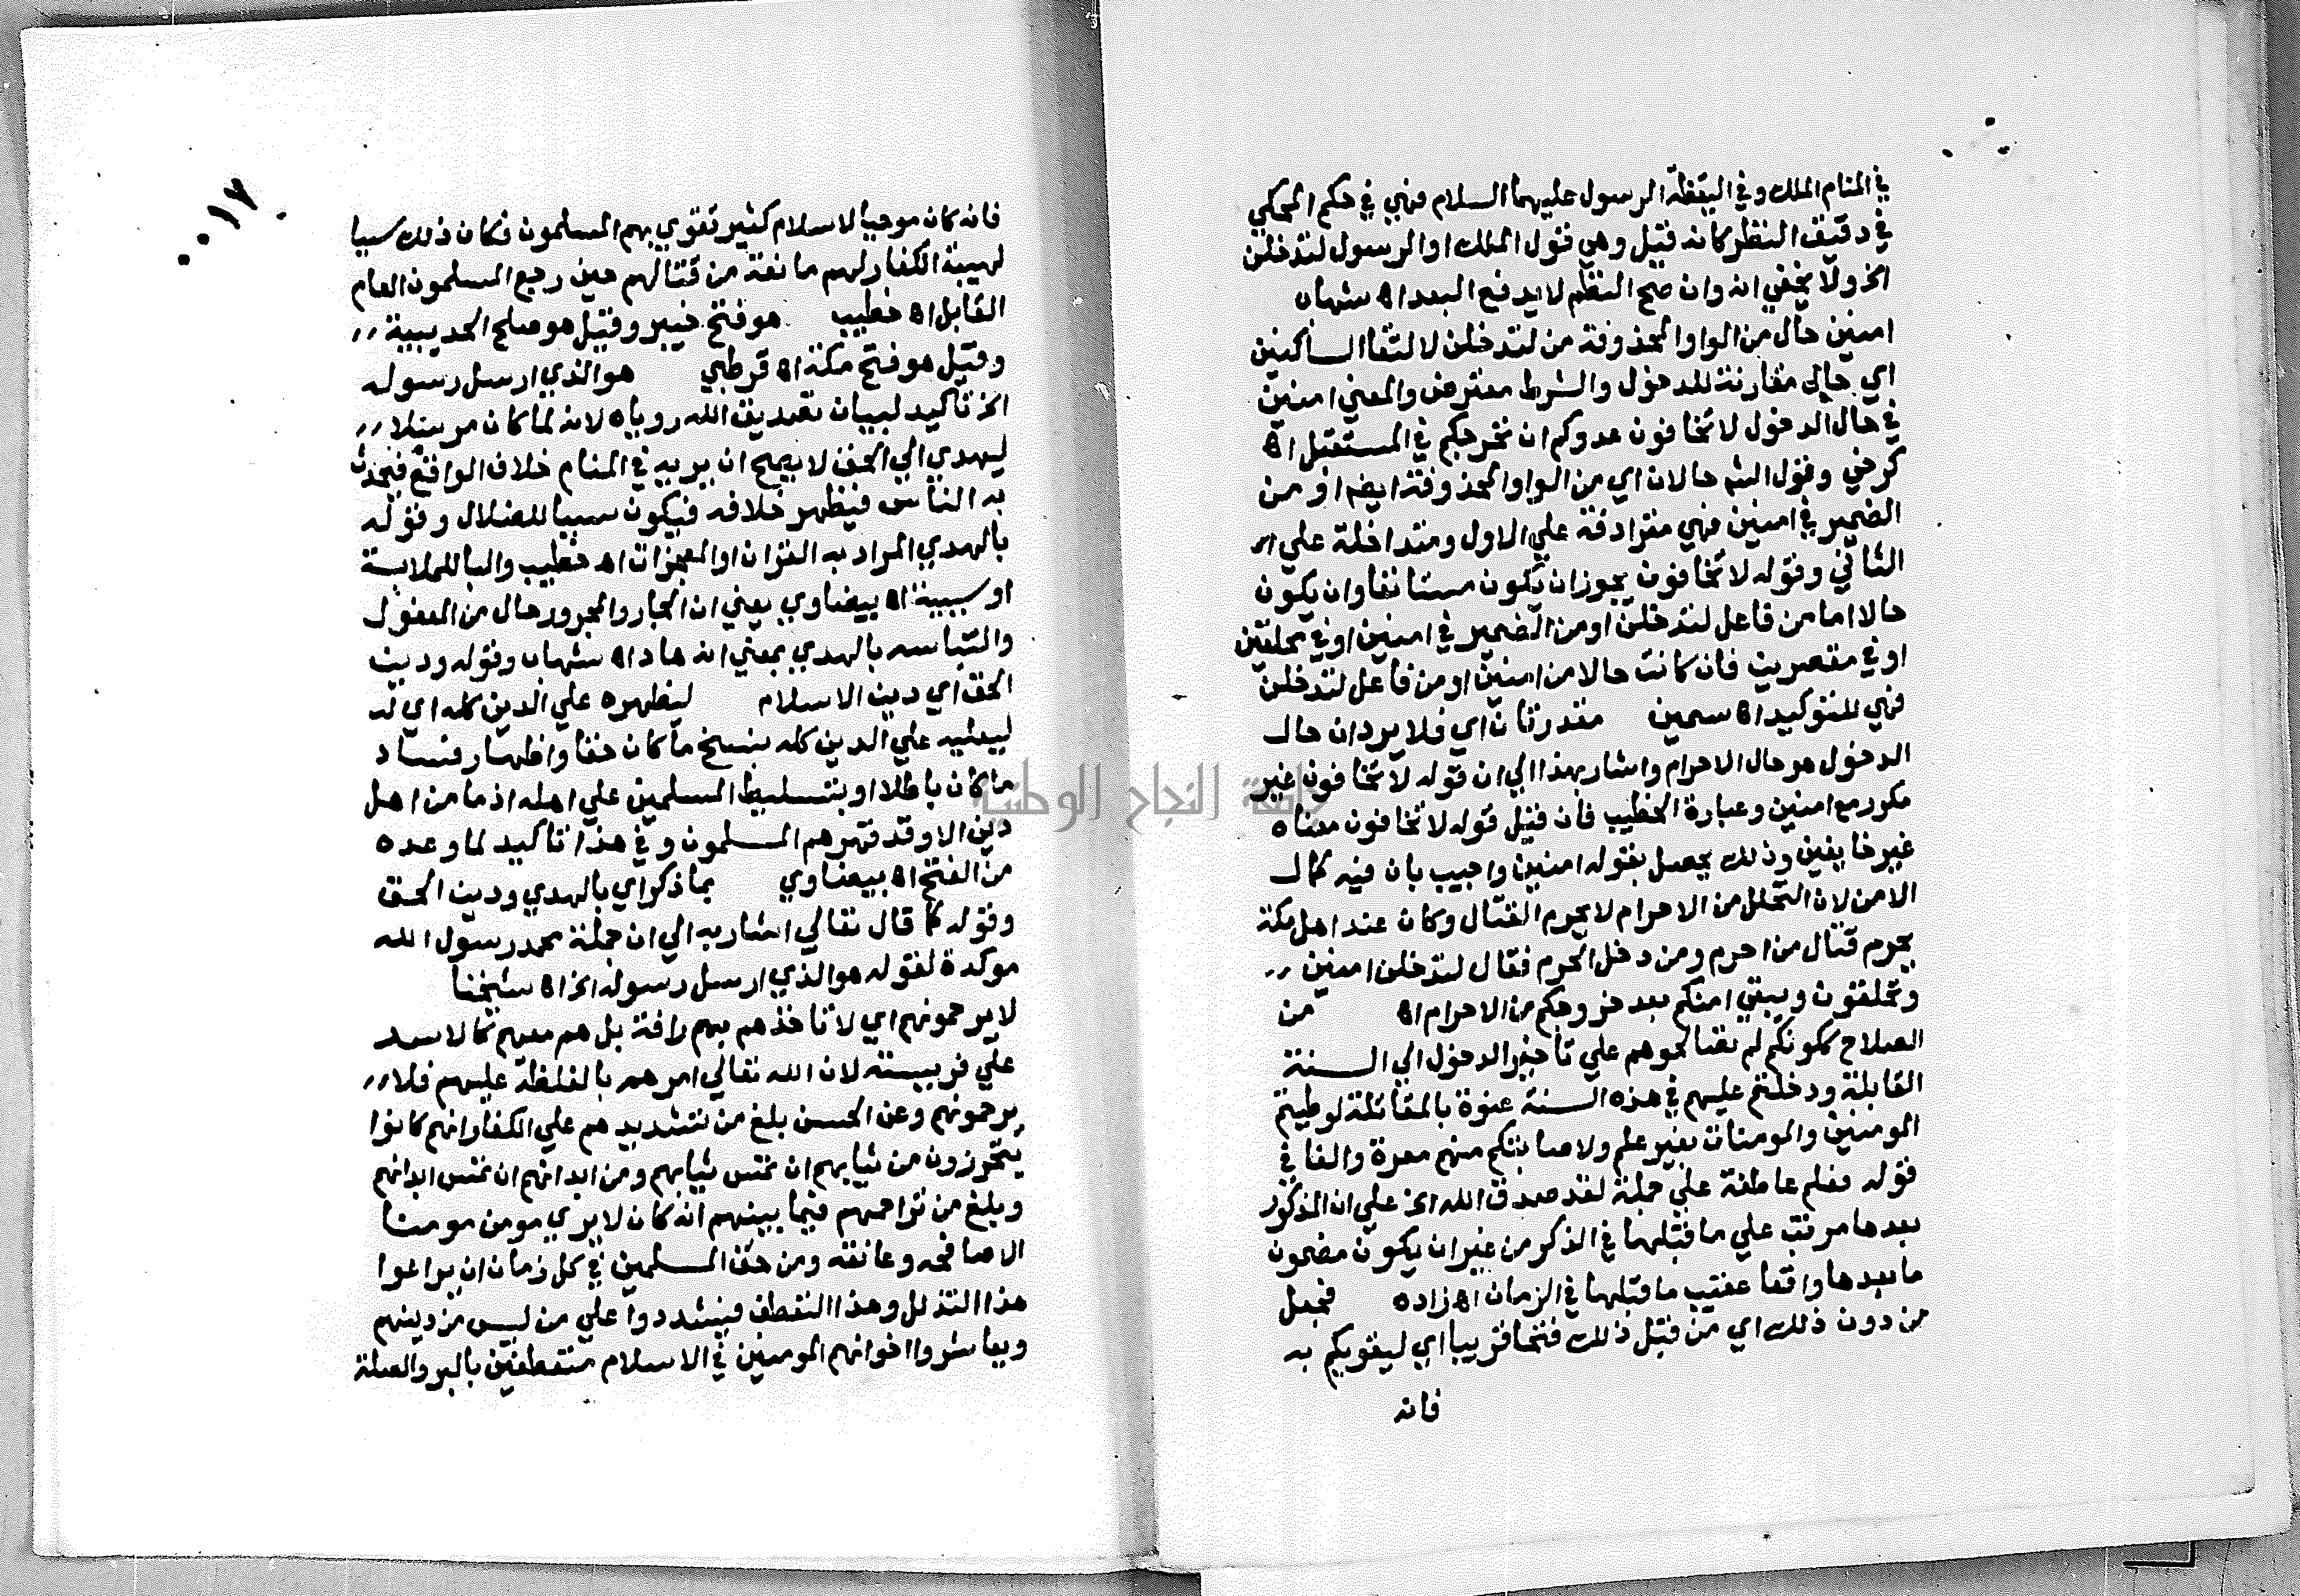 في المنام الملك وفي اليقظة الرسول عليهما السلام فهي في حكم المحكي
في دقيق النظر كانه قيل وهي قول الملك او الرسول لتدخلن
الخ ولا يخفي انه وان صح النظم لا يدفع البعد اه شهاب
امنين حال من الواو المحذوفة من لتدخلن لالتقا الساكنين
اي حال مقارنة للدخول والشرط معترض والمعني امنين
في حال الدخول لا تخافون عدوكم ان يخرجكم في المستقبل اه
كرخي وقول الشم حالان اي من الواو المحذوفة ايضم او من
الضمير في امنين فهي مترادفة علي الاول ومتداخلة علي
الثاني وقوله لا تخافون يجوز ان تكون مستانفا وان يكون
حالا اما من فاعل لتدخلن او من الضمير في امنين او في محلقين
او في مقصرين فان كانت حالا من امنين او من فاعل لتدخلن
فهي للتوكيد اه سمين مقدرتان اي فلا يرد ان حال
الدخول هو حال الاحرام واشار بهذا الي ان قوله لا تخافون غير
مكرر مع امنين وعبارة الخطيب فان قيل قوله لا تخافون معناه
غير خايفين وذلك يحصل بقوله امنين واجيب بان فيه كمال
الامن لان التحلل من الاحرام لا يحرم القتال وكان عند اهل مكة
يحرم قتال من احرم ومن دخل الحرم فقال لتدخلن امنين
وتحلقون ويبقي امنكم بعد خروجكم من الاحرام اه من
الصلاح ككونكم لم تصالحوهم علي تاخير الدخول الي السنة
القابلة ودخلتم عليهم في هذه السنة عنوة بالمقاتلة لوطيتم
المومنين والمومنات بغير علم ولاصابتكم منهم معرة والفا في
قوله فعلم عاطفة علي جملة لقد صدق الله الخ علي ان المذكور
بعدها مرتب علي ما قبلها في الذكر من غير ان يكون مضمون
ما بعدها واقعا عقيب ما قبلها في الزمان اه زاده فجعل
من دون ذلك اي من قبل ذلك فتحا قريبا اي ليقويكم به
فانه
٠٠١٧
فانه كان موجبا لاسلام كثير تقوي بهم المسلمون فكان ذلك سببا
لهيبة الكفار لهم مانعة من قتالهم حين رجع المسلمون العام
القابل اه خطيب هو فتح خيبر وقيل هو صلح الحديبية
وقيل هو فتح مكة اه قرطبي هو الذي ارسل رسوله
الخ تاكيد لبيان تصديق الله روياه لانه لما كان مرسلا
ليهدي الي الحق لا يصح ان يريه في المنام خلاف الواقع فيحدث
به الناس فيظهر خلافه فيكون سببا للضلال وقوله
بالهدي المراد به القران او المعجزات اه خطيب والبا للملابسة
او سببية اه بيضاوي يعني ان الجار والمجرور حال من المفعول
والتباسه بالهدي بمعني انه هاد اه شهاب وقوله ودين
الحق اي دين الاسلام ليظهره علي الدين كله اي له
ليعليه علي الدين كله بنسخ ما كان حقا واظهار فساد
ما كان باطلا او بتسليط المسلمين علي اهله اذ ما من اهل
دين الا وقد قهرهم المسلمون وفي هذا تاكيد لما وعده
من الفتح اه بيضاوي بما ذكر اي بالهدي ودين الحق
وقوله كما قال تعالي اشار به الي ان جملة محمد رسول الله
موكدة لقوله هو الذي ارسل رسوله الخ اه شيخنا
لا يرحمونهم اي لا تاخذهم بهم رافة بل هم معهم كالاسد
علي فريسته لان الله تعالي امرهم بالغلظة عليهم فلا
يرحمونهم وعن الحسن بلغ من تشديدهم علي الكفار انهم كانوا
يتحرزون من ثيابهم ان تمس ثيابهم ومن ابدانهم ان تمس ابدانهم
وبلغ من تراحمهم فيما بينهم انه كان لا يري مومن مومنا
الا صافحه وعانقه ومن حق المسلمين في كل زمان ان يراعوا
هذا التذلل وهذا التعطف فيشددوا علي من ليس من دينهم
ويعاشروا اخوانهم المومنين في الاسلام متعطفين بالبر والصلة
جامعة النجاح الوطنية